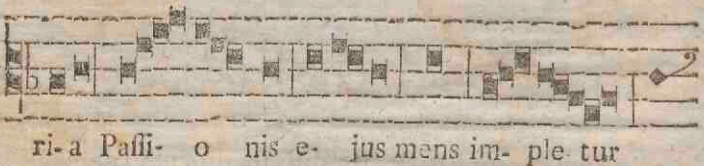 ri-a Paſſi- o nis e- jus mens im- ple tur